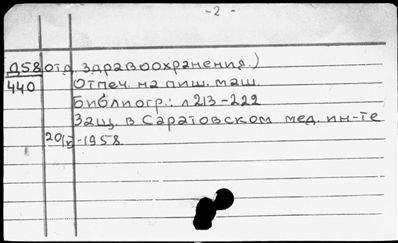 -2-
Д58 отд. здравоохранения.)
440 Отпеч. на пиш. маш.
Библиогр.: л 213-222
Защ. в Саратовском мед. ин-те
20/V-1958